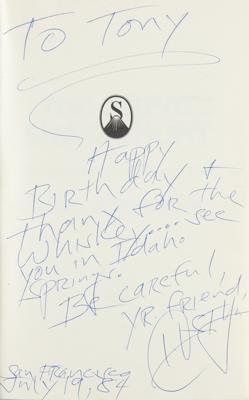 To Tony
S
Happy
Birthday &
Thanx for the
Whiskey.... see
you in Idaho
Springs.
Be careful,
Yr. friend,
HST
San Francisco
July 19, 84